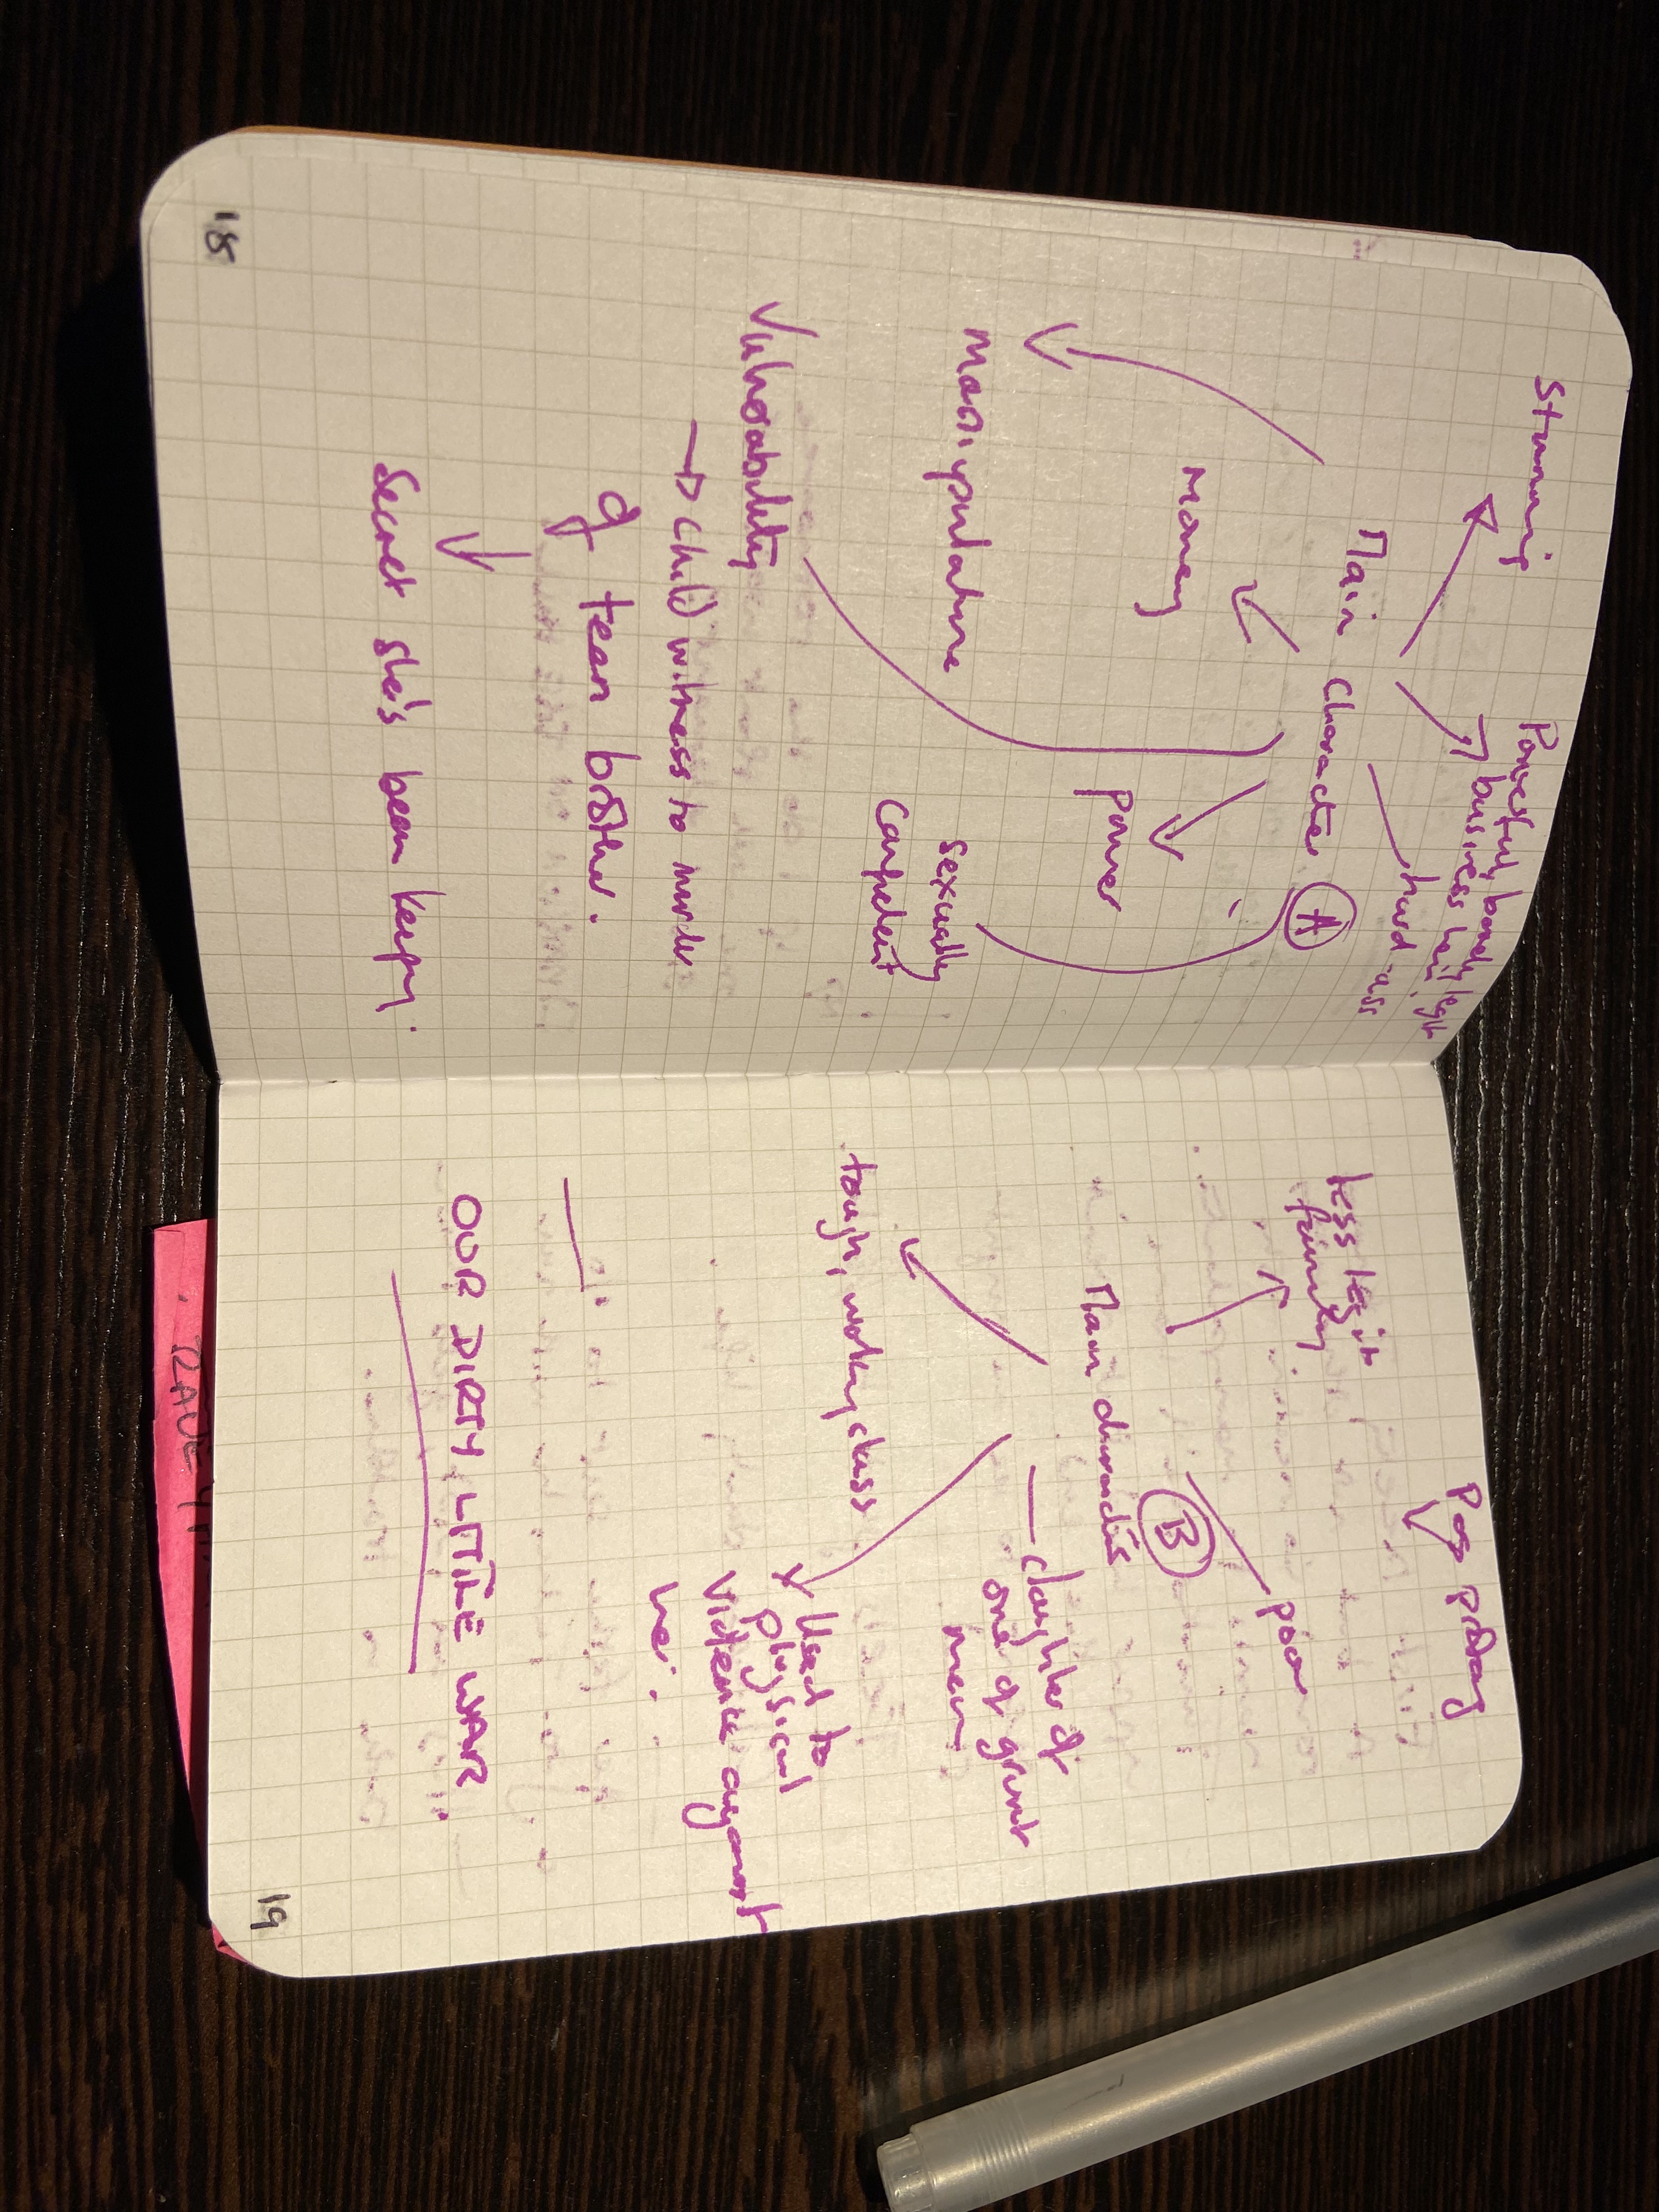 Stunning
Powerful, barely legit
business heir
hard-ass
Main Character A
Money
Power
Manipulative
Sexually
Confident
Vulnerability
→ Child witness to murder
of teen brother.
Secret she's been keeping.
18
POV prology
less legit
family
poor
Main character B
daughter of
one of grunt
men
tough, working class
Used to
physical
violence against
her.
OUR DIRTY LITTLE WAR
19